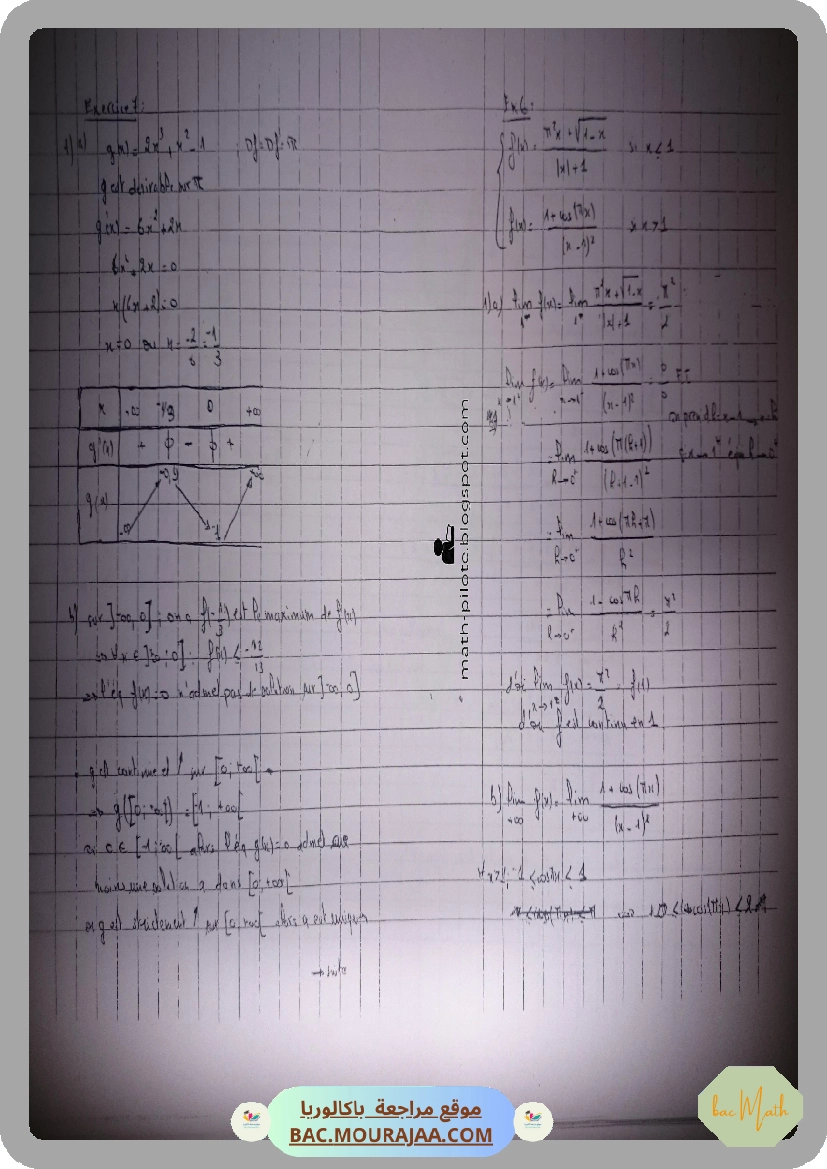 Exercice 7:
1) a) g(x) = 2x³ + x² - 1 ; Dg = Df = IR
g est dérivable sur IR
g'(x) = 6x² + 2x
6x² + 2x = 0
x(6x+2) = 0
x = 0 ou x = -2/6 = -1/3
x -∞ -1/3 0 +∞
g'(x) + 0 - 0 +
g(x) -∞ -0,9 -1 +∞
b) sur ]-∞, 0] ; on a f(-1/3) est le maximum de f(x)
=> ∀x ∈ ]-∞ ; 0] : f(x) ≤
=> l'éq f(x)=0 n'admet pas de solution sur ]-∞, 0]
g est continue et ↑ sur [0; +∞[
=> g([0; +∞[) = [-1; +∞[
0 ∈ [-1; +∞[ alors l'éq g(x)=0 admet au
moins une solution dans [0, +∞[
or g est strictement ↑ sur [0, +∞[ alors α est unique
→ suite
Ex 6:
f(x) = (π²x + √(1-x)) / (|x|+1) si x ≤ 1
f(x) = (1+cos(πx)) / (x-1)² si x > 1
1) a) lim 1⁻ f(x) = lim 1⁻ (π²x + √(1-x)) / (|x|+1) = π²/2
lim x→1⁺ f(x) = lim x→1⁺ (1+cos(πx)) / (x-1)² = 0/0 FI
on prend h = x-1
= lim h→0⁺ (1+cos(π(h+1))) / (h+1-1)²
= lim h→0⁺ (1+cos(πh+π)) / h²
= lim h→0⁺ (1-cos πh) / h² = π²/2
d'où lim x→1 f(x) = π²/2 = f(1)
d'où f est continu en 1
b) lim +∞ f(x) = lim +∞ (1+cos(πx)) / (x-1)²
∀x>1, -1 ≤ cos πx ≤ 1
math-pilote.blogspot.com
موقع مراجعة باكالوريا
BAC.MOURAJAA.COM
bac Math